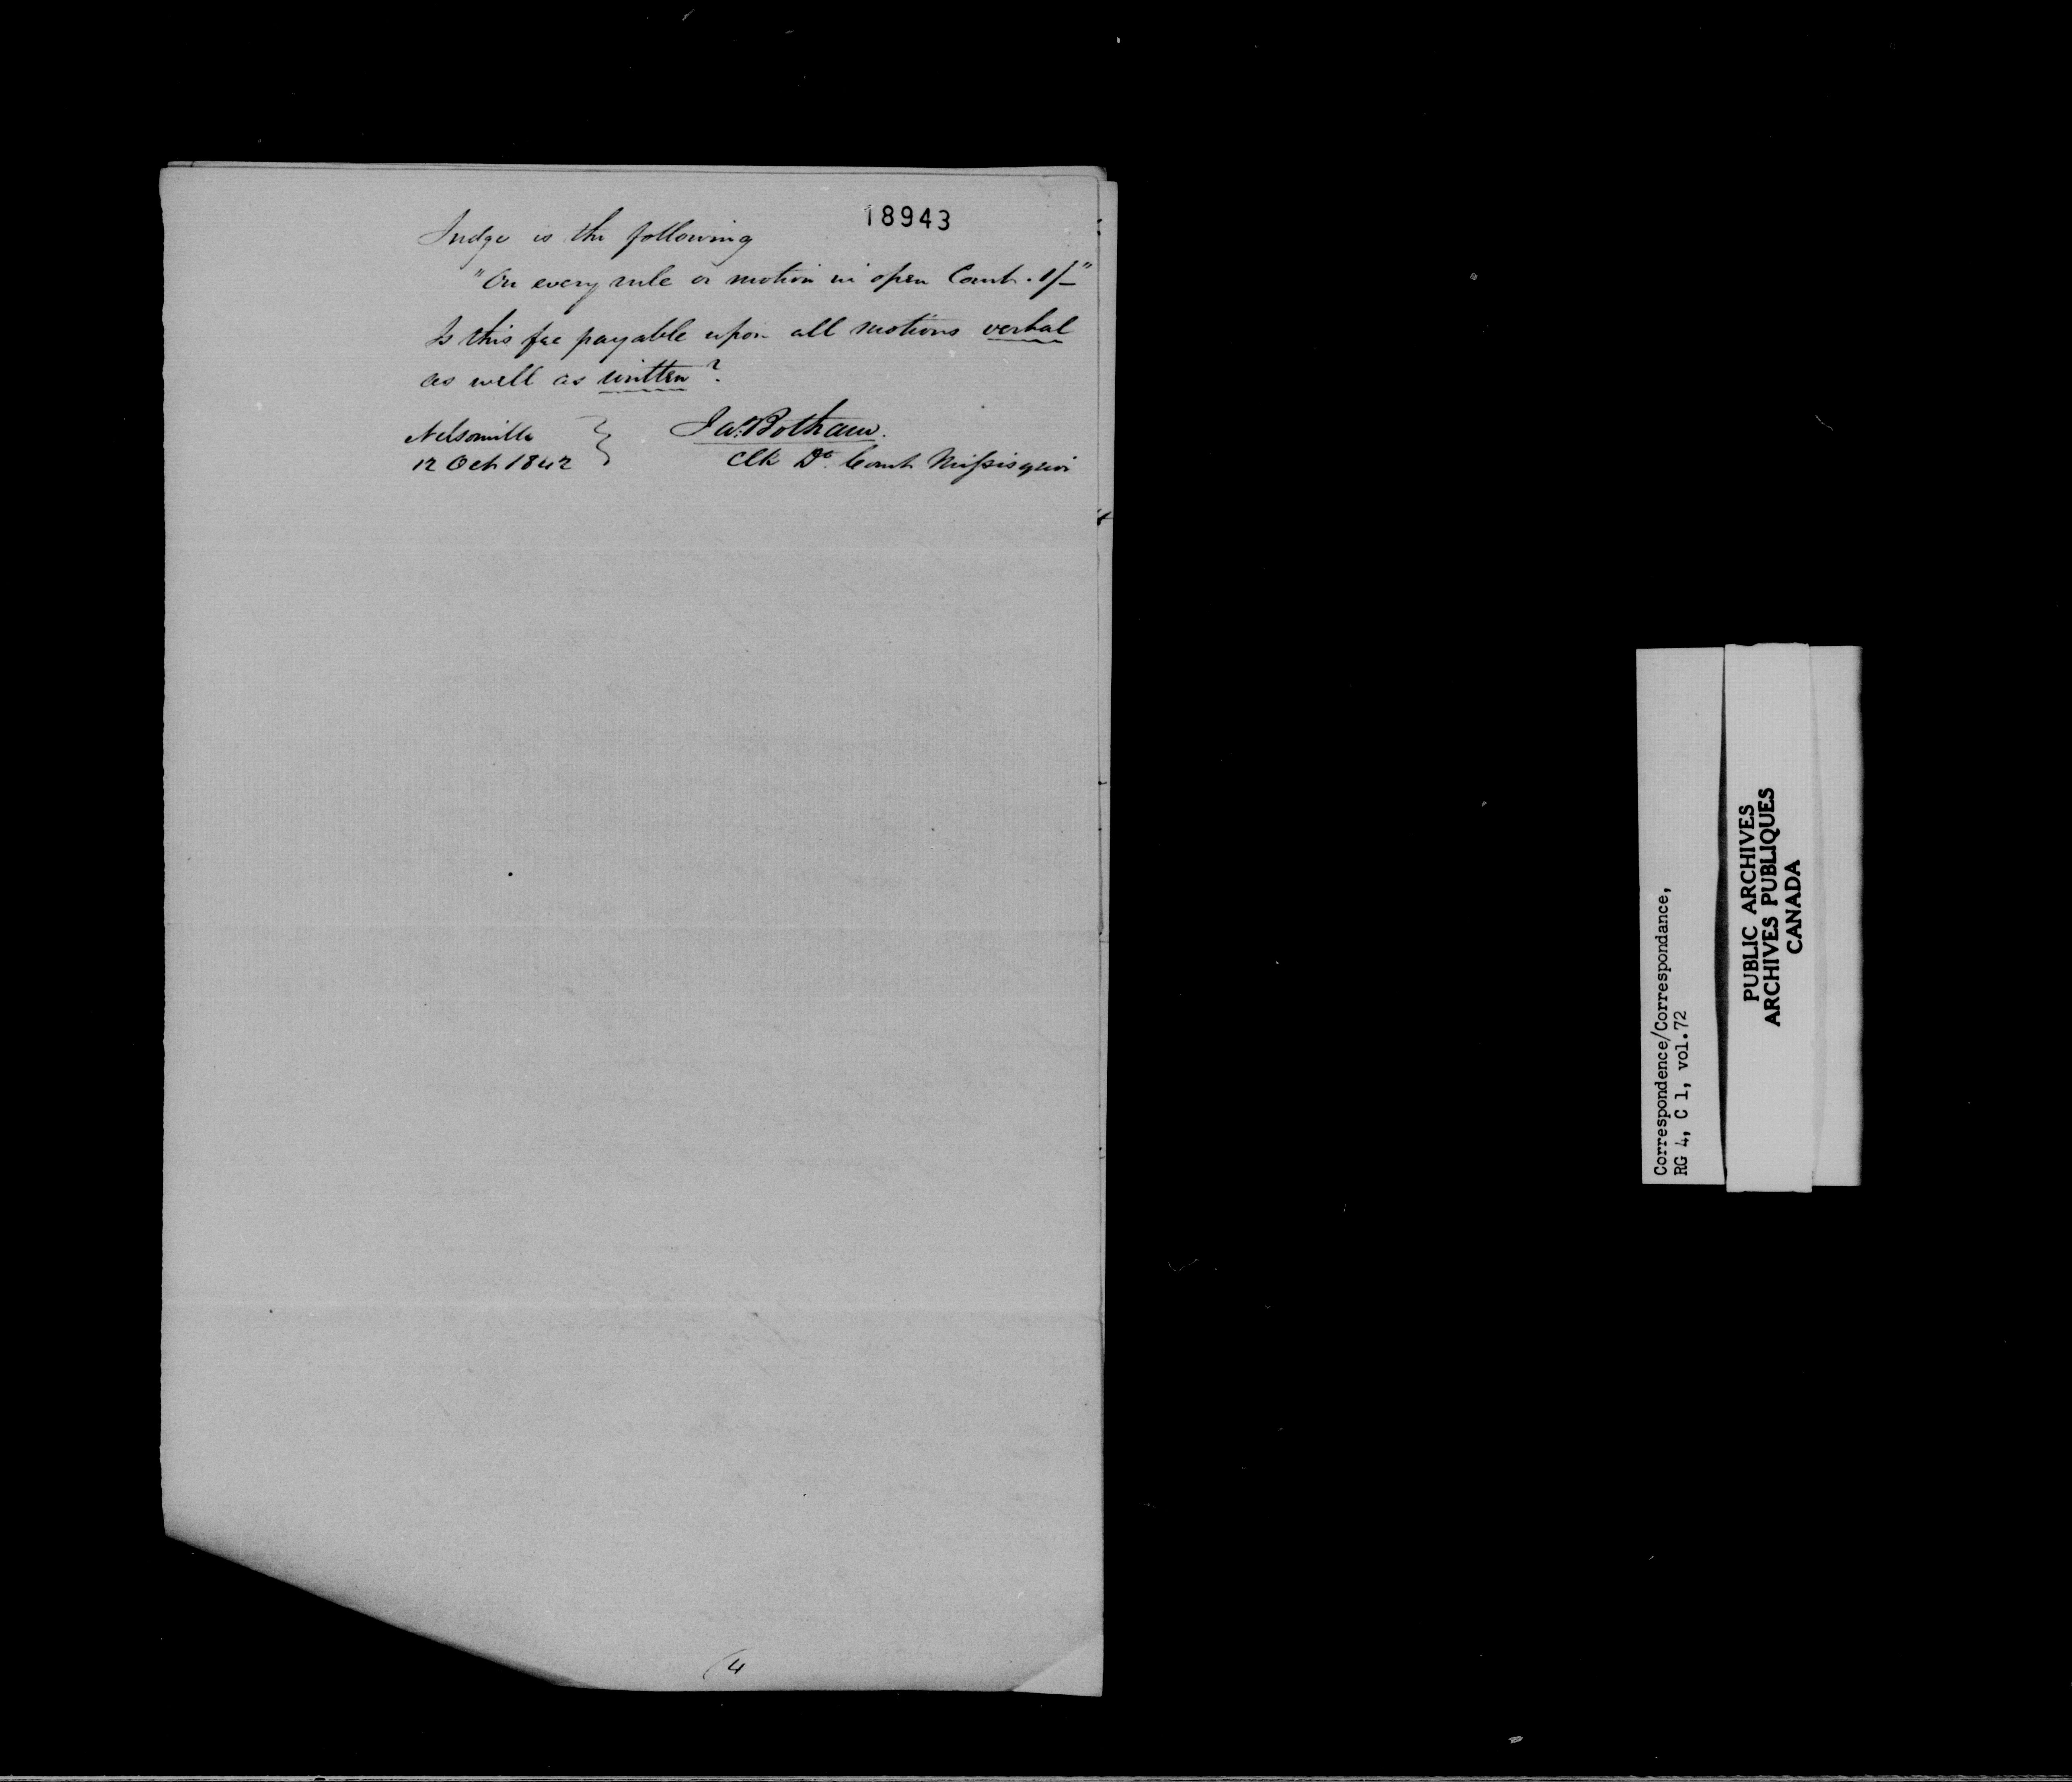 18943
Judge is the following
"On every rule or motion in open Court. 1/-"
Is this fee payable upon all motions verbal
as well as written?
Nelsonville
12 Oct 1842
Jas. Botham.
Clk Dt. Court Missisquoi
(4
Correspondence/Correspondance,
RG 4, C 1, vol.72
PUBLIC ARCHIVES
ARCHIVES PUBLIQUES
CANADA